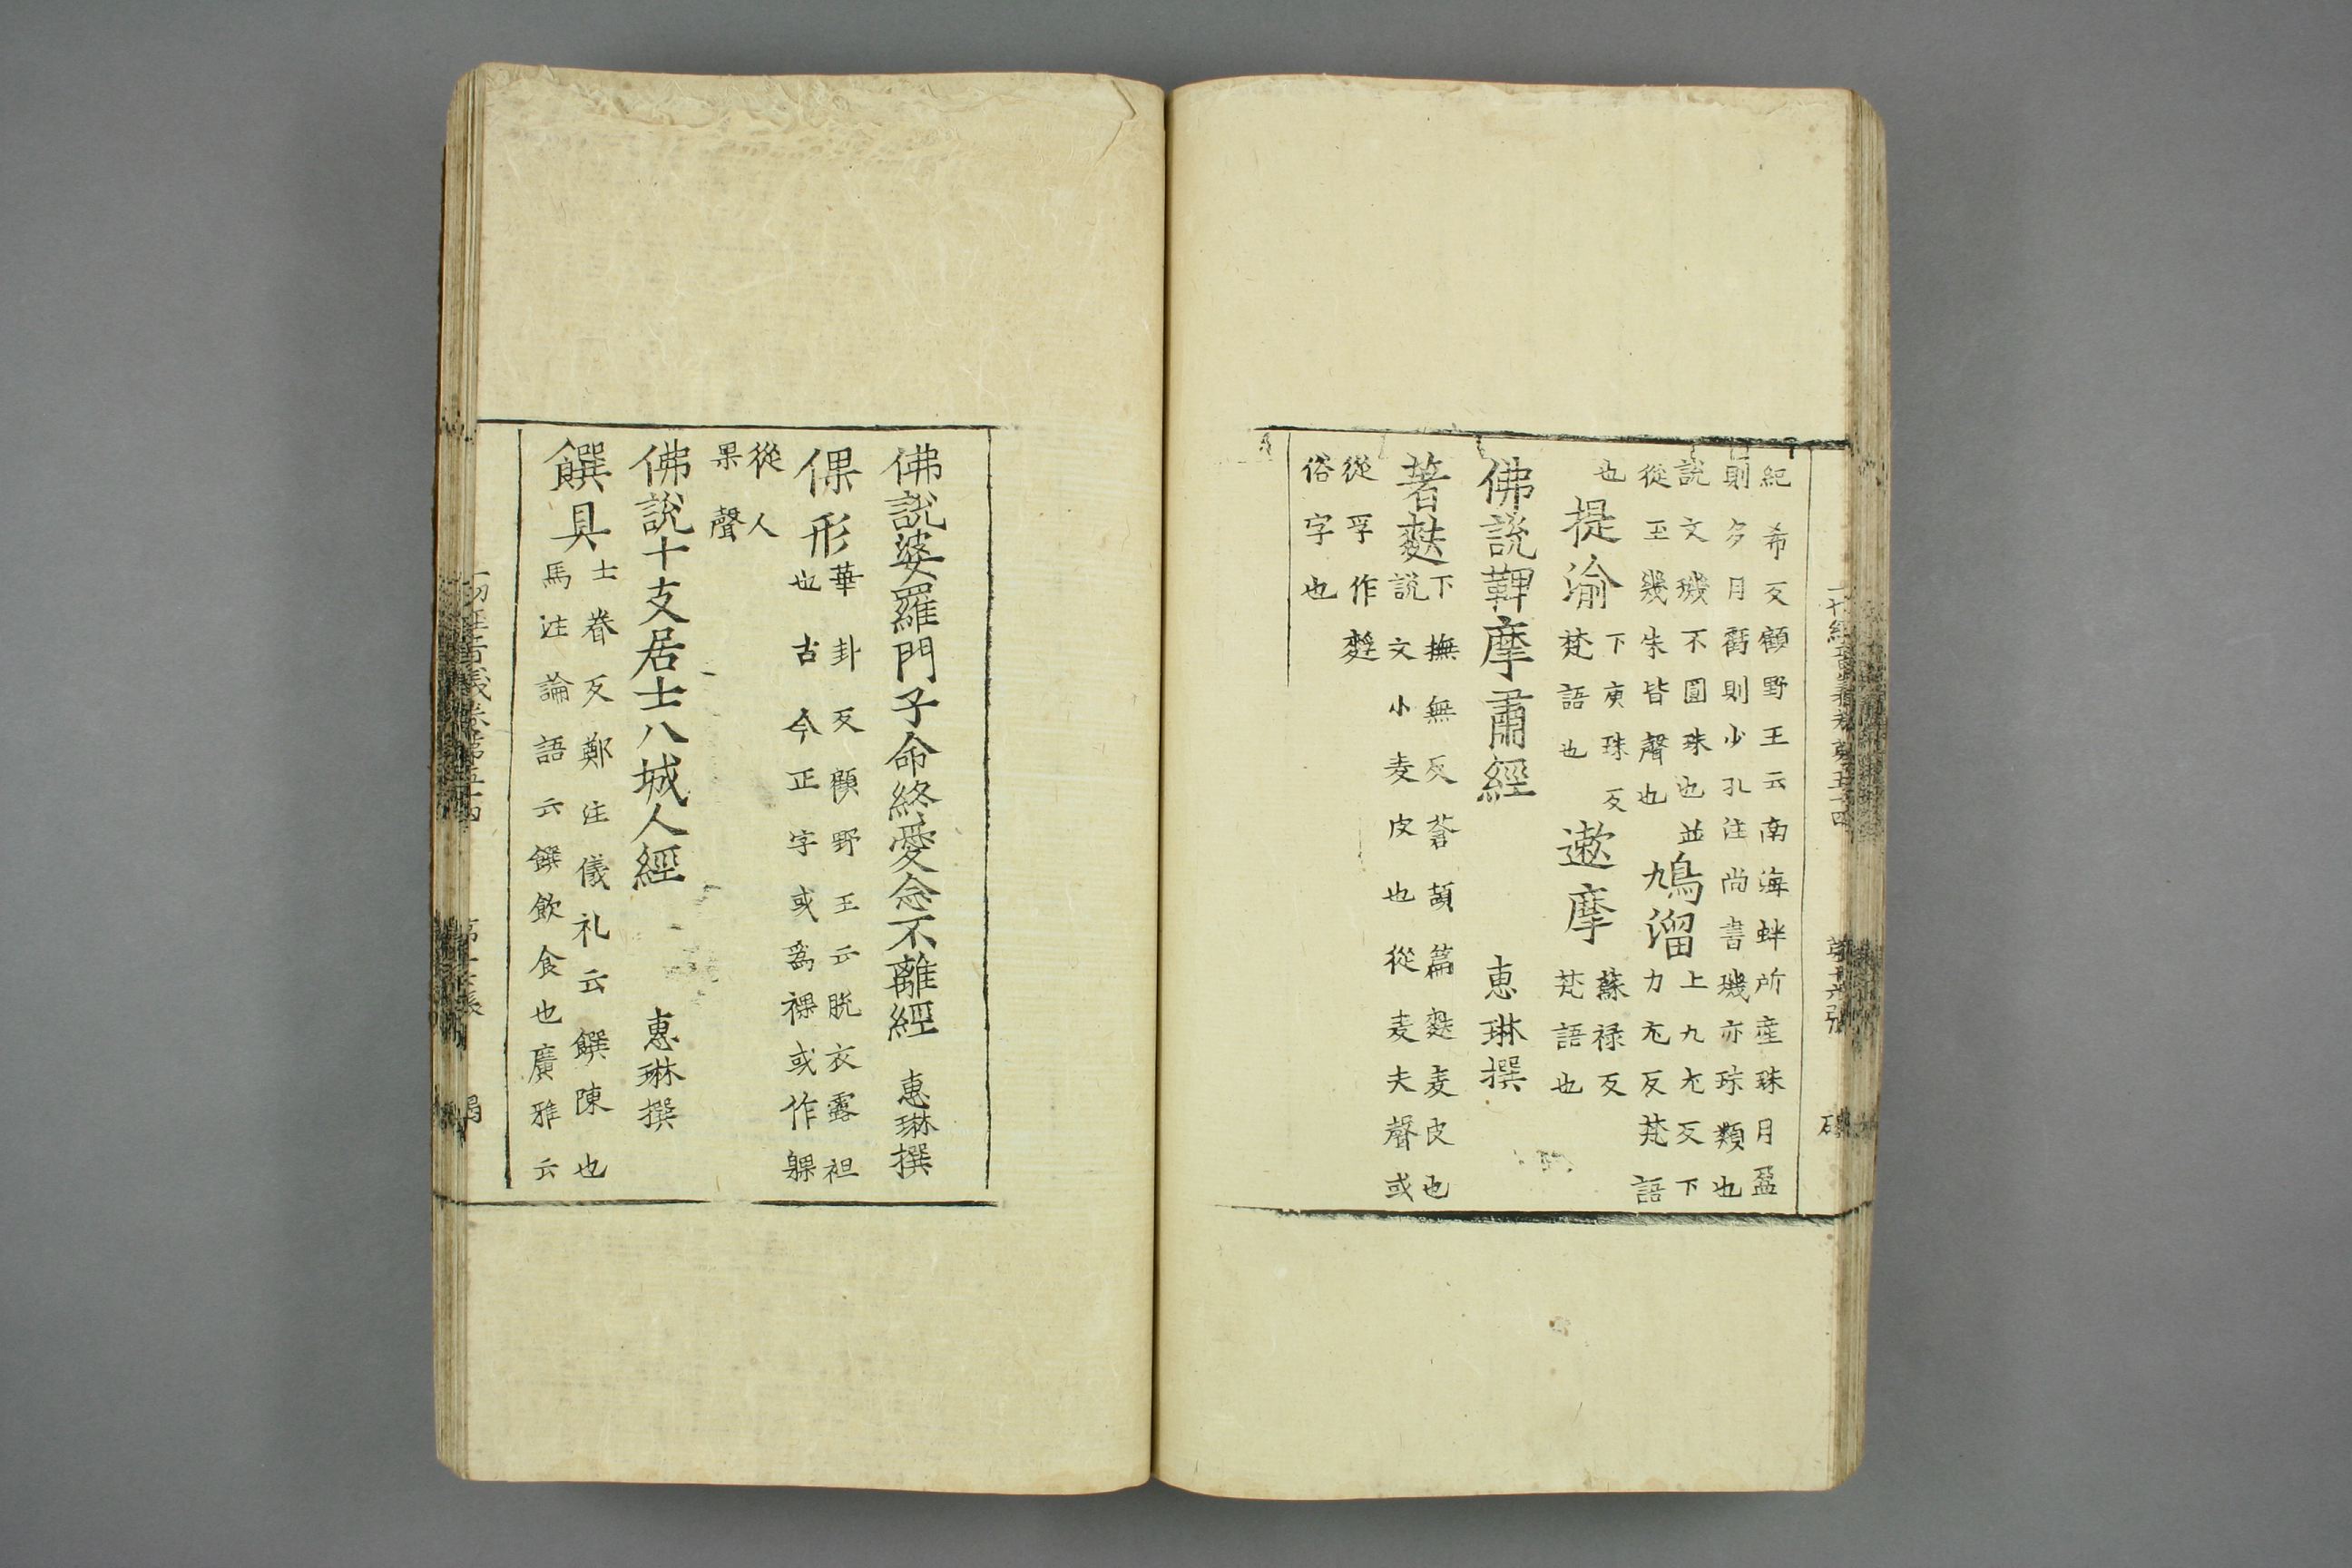 一切經音義卷第五十四 第十六張
紀希反顧野王云南海蚌所産珠月盈
則夕月虧則少孔注尚書璣亦珠類也
説文璣不圓珠也並
從玉幾朱皆聲也
鳩溜
上九尤反下
力尤反梵語
也
提渝
下庾珠反
梵語也
遬摩
蘇禄反
梵語也
佛説鞞摩肅經 惠琳撰
著麩
下撫無反蒼頡篇麩麦皮也
説文小麦皮也從麦夫聲或
從孚作䴸
俗字也
佛説婆羅門子命終愛念不離經 惠琳撰
倮形
華卦反顧野王云脱衣露袒
也古今正字或爲裸或作躶
從人
果聲
佛説十支居士八城人經 惠琳撰
饌具
士眷反鄭注儀礼云饌陳也
馬注論語云饌飲食也廣雅云
一切經音義卷第五十四